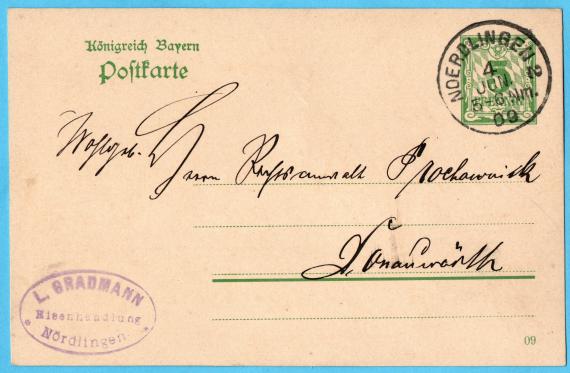 Königreich Bayern
Postkarte
NOERDLINGEN 2
4.
JUN.
5-6 Nm.
09
5
Wohlgeb.
Herrn Rechtsanwalt Prochownik
Donauwörth
L. GRADMANN
Eisenhandlung
* Nördlingen *
09